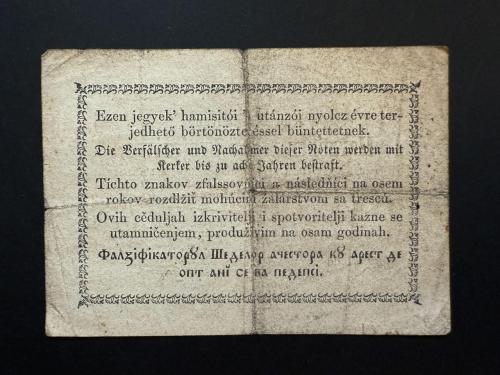 Ezen jegyek' hamisitói 's utánzói nyolcz évre ter-
jedhető börtönöztetéssel büntettetnek.
Die Verfälscher und Nachahmer dieser Noten werden mit
Kerker bis zu acht Jahren bestraft.
Tíchto znakov zfalssovníci a následníci na osem
rokov rozdlžiť mohúcim žalárstvom sa trescú.
Ovih cĕduljah izkrivitelji i spotvoritelji kazne se
utamničenjem, produživim na osam godinah.
Фалзіфікаторꙋл Шеделор ачестора кꙋ арест де
опт анĭ се ва педепсі.